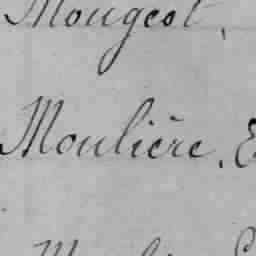 Mougeot,
Moulière. E